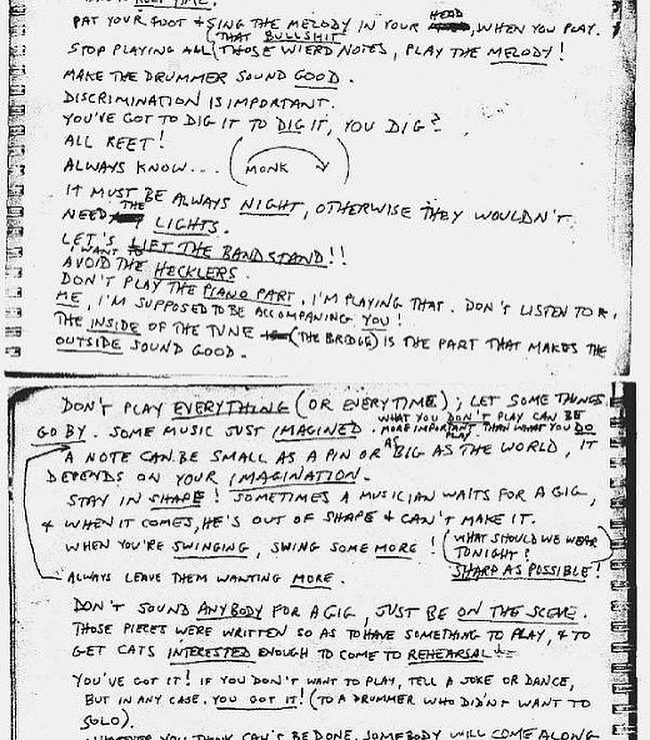 KEEP TIME.
PAT YOUR FOOT & SING THE MELODY IN YOUR HEAD, WHEN YOU PLAY.
STOP PLAYING ALL (THAT BULLSHIT) THOSE WIERD NOTES, PLAY THE MELODY!
MAKE THE DRUMMER SOUND GOOD.
DISCRIMINATION IS IMPORTANT.
YOU'VE GOT TO DIG IT TO DIG IT, YOU DIG?
ALL REET!
ALWAYS KNOW... (MONK)
IT MUST BE ALWAYS NIGHT, OTHERWISE THEY WOULDN'T
NEED THE LIGHTS.
LET'S LIFT THE BAND STAND!!
I WANT TO AVOID THE HECKLERS.
DON'T PLAY THE PIANO PART, I'M PLAYING THAT. DON'T LISTEN TO
ME, I'M SUPPOSED TO BE ACCOMPANING YOU!
THE INSIDE OF THE TUNE (THE BRIDGE) IS THE PART THAT MAKES THE
OUTSIDE SOUND GOOD.
DON'T PLAY EVERYTHING (OR EVERY TIME); LET SOME THINGS
GO BY. SOME MUSIC JUST IMAGINED. WHAT YOU DON'T PLAY CAN BE
MORE IMPORTANT THAN WHAT YOU DO PLAY.
A NOTE CAN BE SMALL AS A PIN OR AS BIG AS THE WORLD, IT
DEPENDS ON YOUR IMAGINATION.
STAY IN SHAPE! SOMETIMES A MUSICIAN WAITS FOR A GIG,
& WHEN IT COMES, HE'S OUT OF SHAPE & CAN'T MAKE IT.
WHEN YOU'RE SWINGING, SWING SOME MORE!
(WHAT SHOULD WE WEAR
TONIGHT?
SHARP AS POSSIBLE!)
ALWAYS LEAVE THEM WANTING MORE.
DON'T SOUND ANYBODY FOR A GIG, JUST BE ON THE SCENE.
THOSE PIECES WERE WRITTEN SO AS TO HAVE SOMETHING TO PLAY, & TO
GET CATS INTERESTED ENOUGH TO COME TO REHEARSAL!
YOU'VE GOT IT! IF YOU DON'T WANT TO PLAY, TELL A JOKE OR DANCE,
BUT IN ANY CASE, YOU GOT IT! (TO A DRUMMER WHO DIDN'T WANT TO
SOLO).
WHATEVER YOU THINK CAN'T BE DONE, SOMEBODY WILL COME ALONG